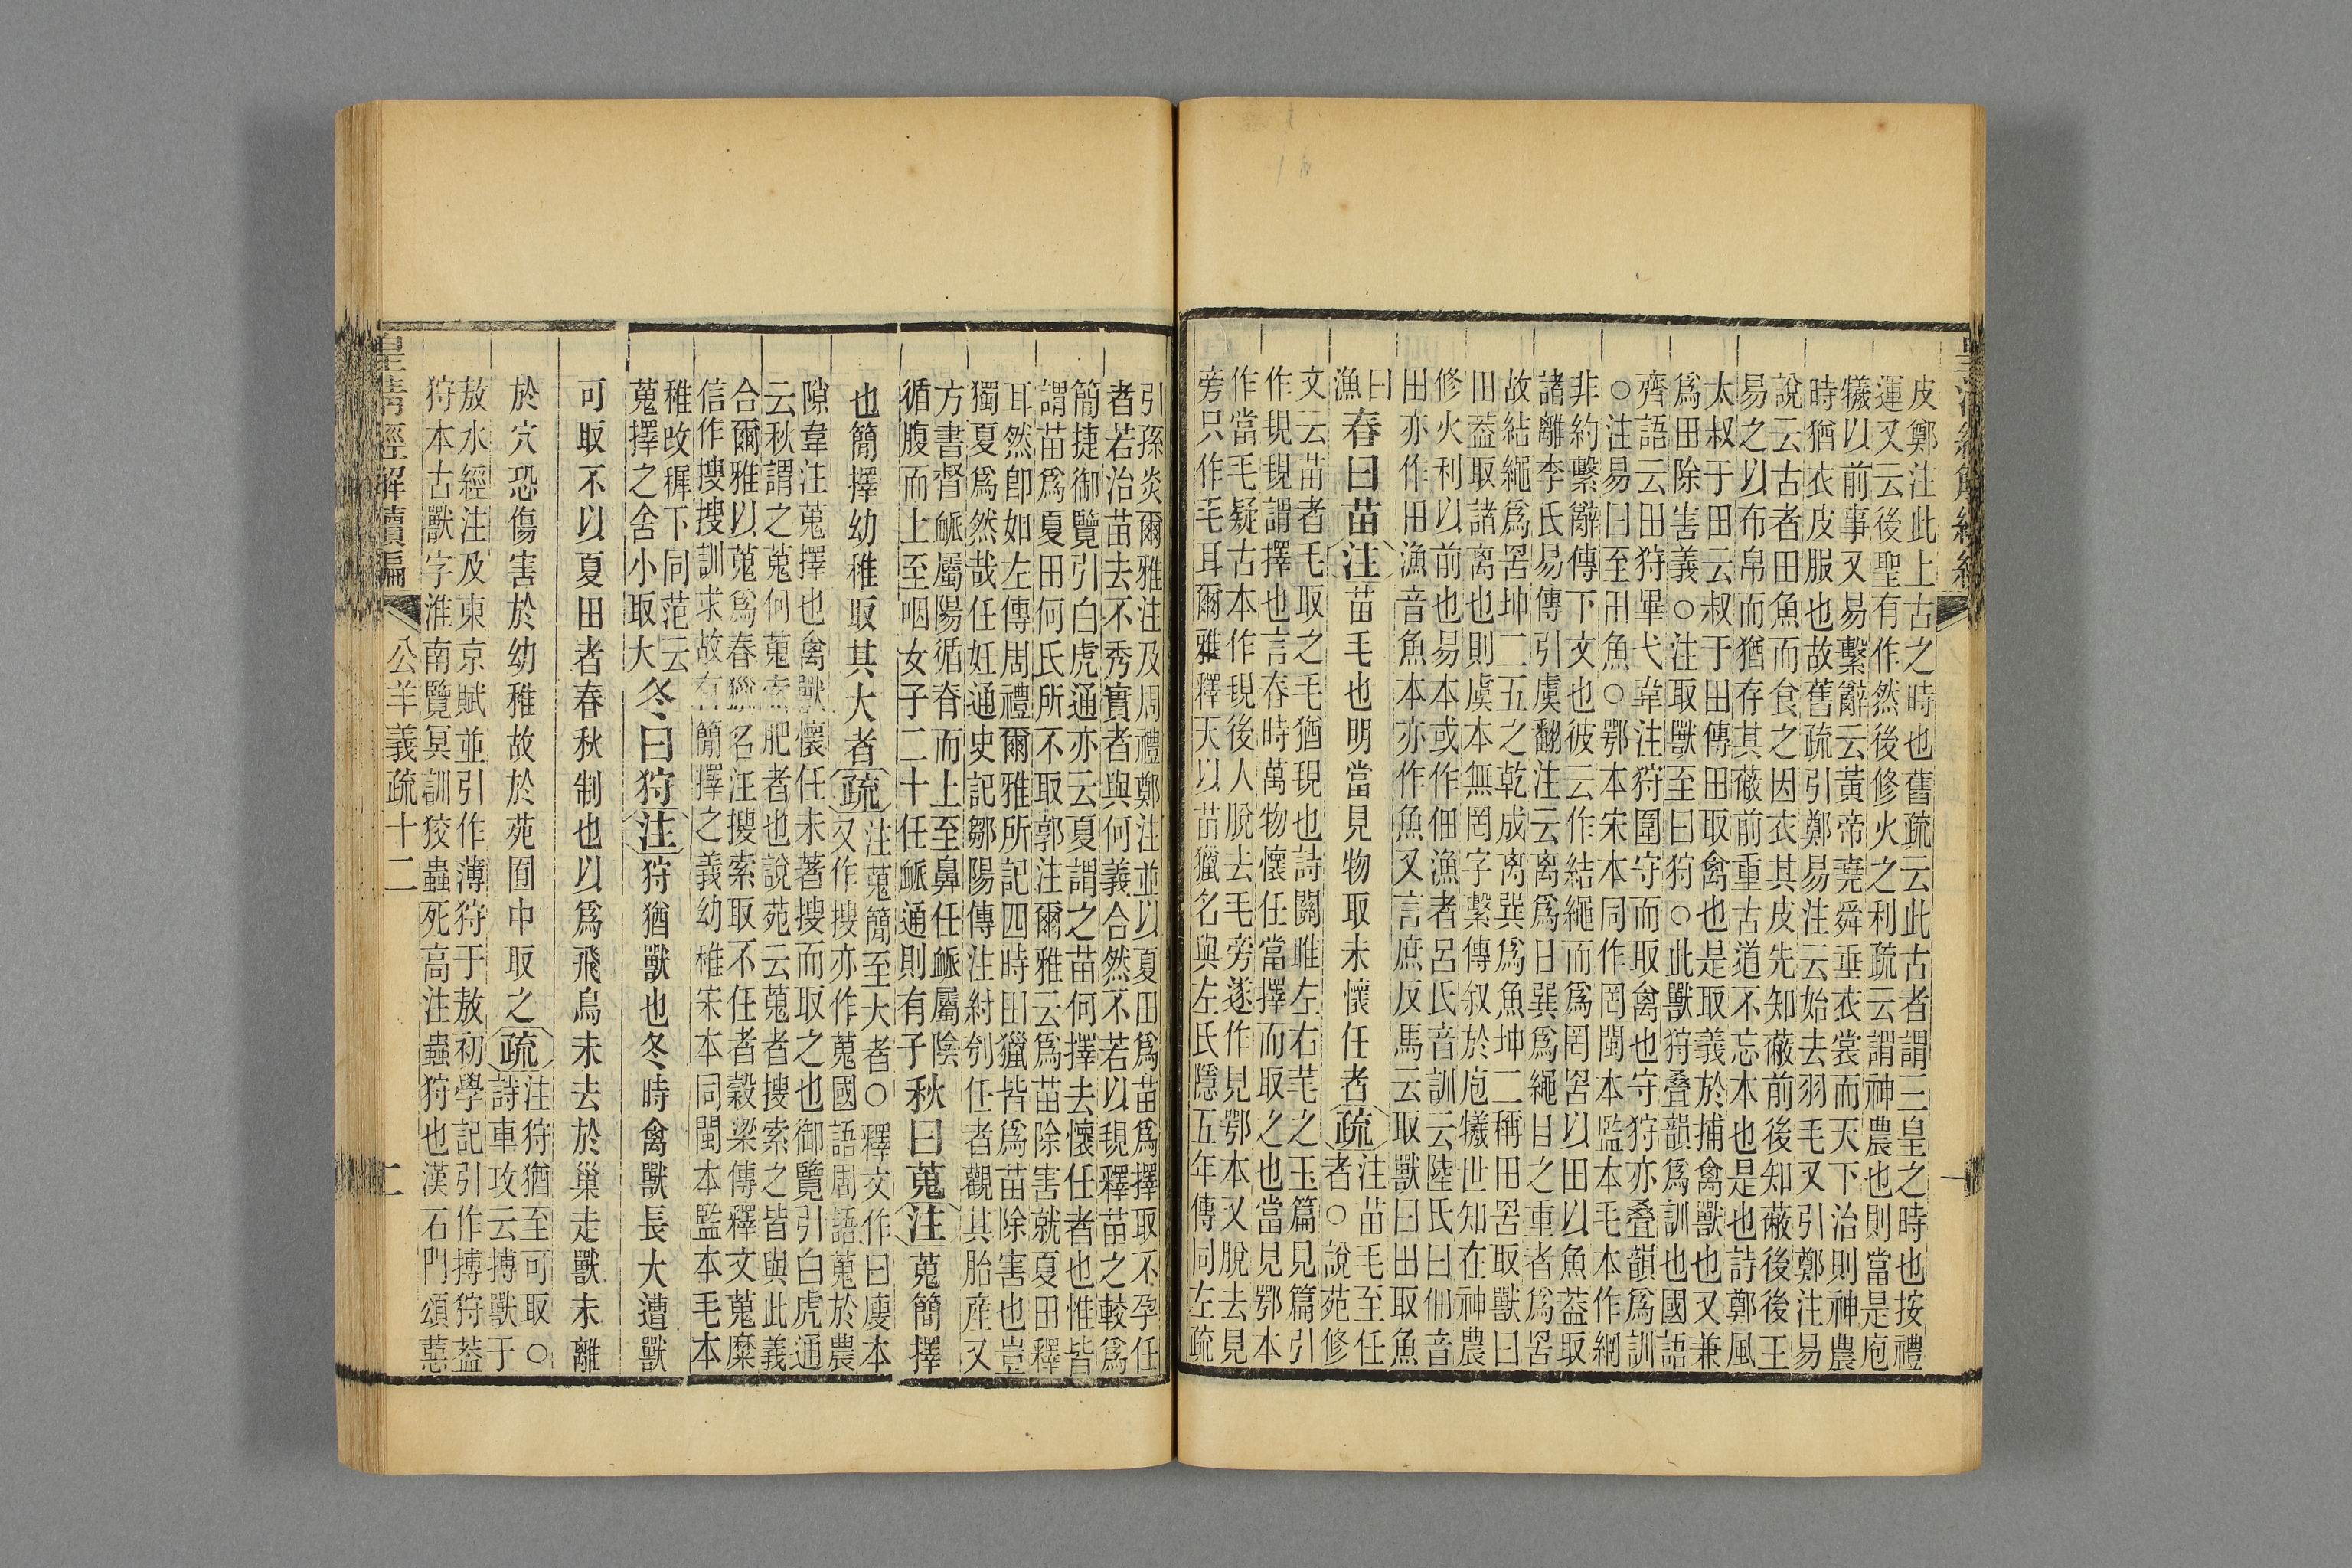 皮鄭注此上古之時也舊疏云此古者謂三皇之時也按禮
運又云後聖有作然後修火之利疏云謂神農也則當是庖
犧以前事又易繫辭云黃帝堯舜垂衣裳而天下治則神農
時猶衣皮服也故舊疏引鄭易注云始去羽毛又引鄭注易
說云古者田魚而食之因衣其皮先知蔽前後知蔽後後王
易之以布帛而猶存其蔽前重古道不忘本也是也詩鄭風
太叔于田云叔于田傳田取禽也是取義於捕禽獸也又兼
爲田除害義○注取獸至曰狩○此獸狩叠韻爲訓也國語
齊語云田狩畢弋韋注狩圍守而取禽也守狩亦叠韻爲訓
○注易曰至田魚○鄂本宋本同作罔閩本監本毛本作網
非約繫辭傳下文也彼云作結繩而爲罔罟以田以魚葢取
諸離李氏易傳引虞翻注云离爲目巽爲繩目之重者爲罟
故結繩爲罟坤二五之乾成离巽爲魚坤二稱田罟取獸曰
田葢取諸离也則虞本無罔字繫傳叙於庖犧世知在神農
修火利以前也易本或作佃漁者呂氏音訓云陸氏曰佃音
田亦作田漁音魚本亦作魚又言庶反馬云取獸曰田取魚
曰漁春曰苗注苗毛也明當見物取未懷任者疏注苗毛至任者○說苑修
文云苗者毛取之毛猶覒也詩關雎左右芼之玉篇見篇引
作覒覒謂擇也言春時萬物懷任當擇而取之也當見鄂本
作當毛疑古本作覒後人脫去毛旁遂作見鄂本又脫去見
旁只作毛耳爾雅釋天以苗獵名與左氏隱五年傳同左疏
引孫炎爾雅注及周禮鄭注並以夏田爲苗爲擇取不孕任
者若治苗去不秀實者與何義合然不若以覒釋苗之較爲
簡捷御覽引白虎通亦云夏謂之苗何擇去懷任者也惟皆
謂苗爲夏田何氏所不取郭注爾雅云爲苗除害就夏田釋
耳然卽如左傳周禮爾雅所記四時田獵皆爲苗除害也豈
獨夏爲然哉任妊通史記鄒陽傳注紂刳任者觀其胎產又
方書督脈屬陽循脊而上至鼻任脈屬陰
循腹而上至咽女子二十任脈通則有子秋曰蒐注蒐簡擇
也簡擇幼稚取其大者疏注蒐簡至大者○釋文作曰廋本
又作搜亦作蒐國語周語蒐於農
隙韋注蒐擇也禽獸懷任未著搜而取之也御覽引白虎通
云秋謂之蒐何蒐索肥者也說苑云蒐者搜索之皆與此義
合爾雅以蒐爲春獵名注搜索取不任者穀梁傳釋文蒐麋
信作搜搜訓求故有簡擇之義幼稚宋本同閩本監本毛本
稚改穉下同范云
蒐擇之舍小取大冬曰狩注狩猶獸也冬時禽獸長大遭獸
可取不以夏田者春秋制也以爲飛鳥未去於巢走獸未離
於穴恐傷害於幼稚故於苑囿中取之疏注狩猶至可取○
詩車攻云搏獸于
敖水經注及東京賦並引作薄狩于敖初學記引作搏狩葢
狩本古獸字淮南覽冥訓狡蟲死高注蟲狩也漢石門頌惡
皇清經解續編
公羊義疏十二
二